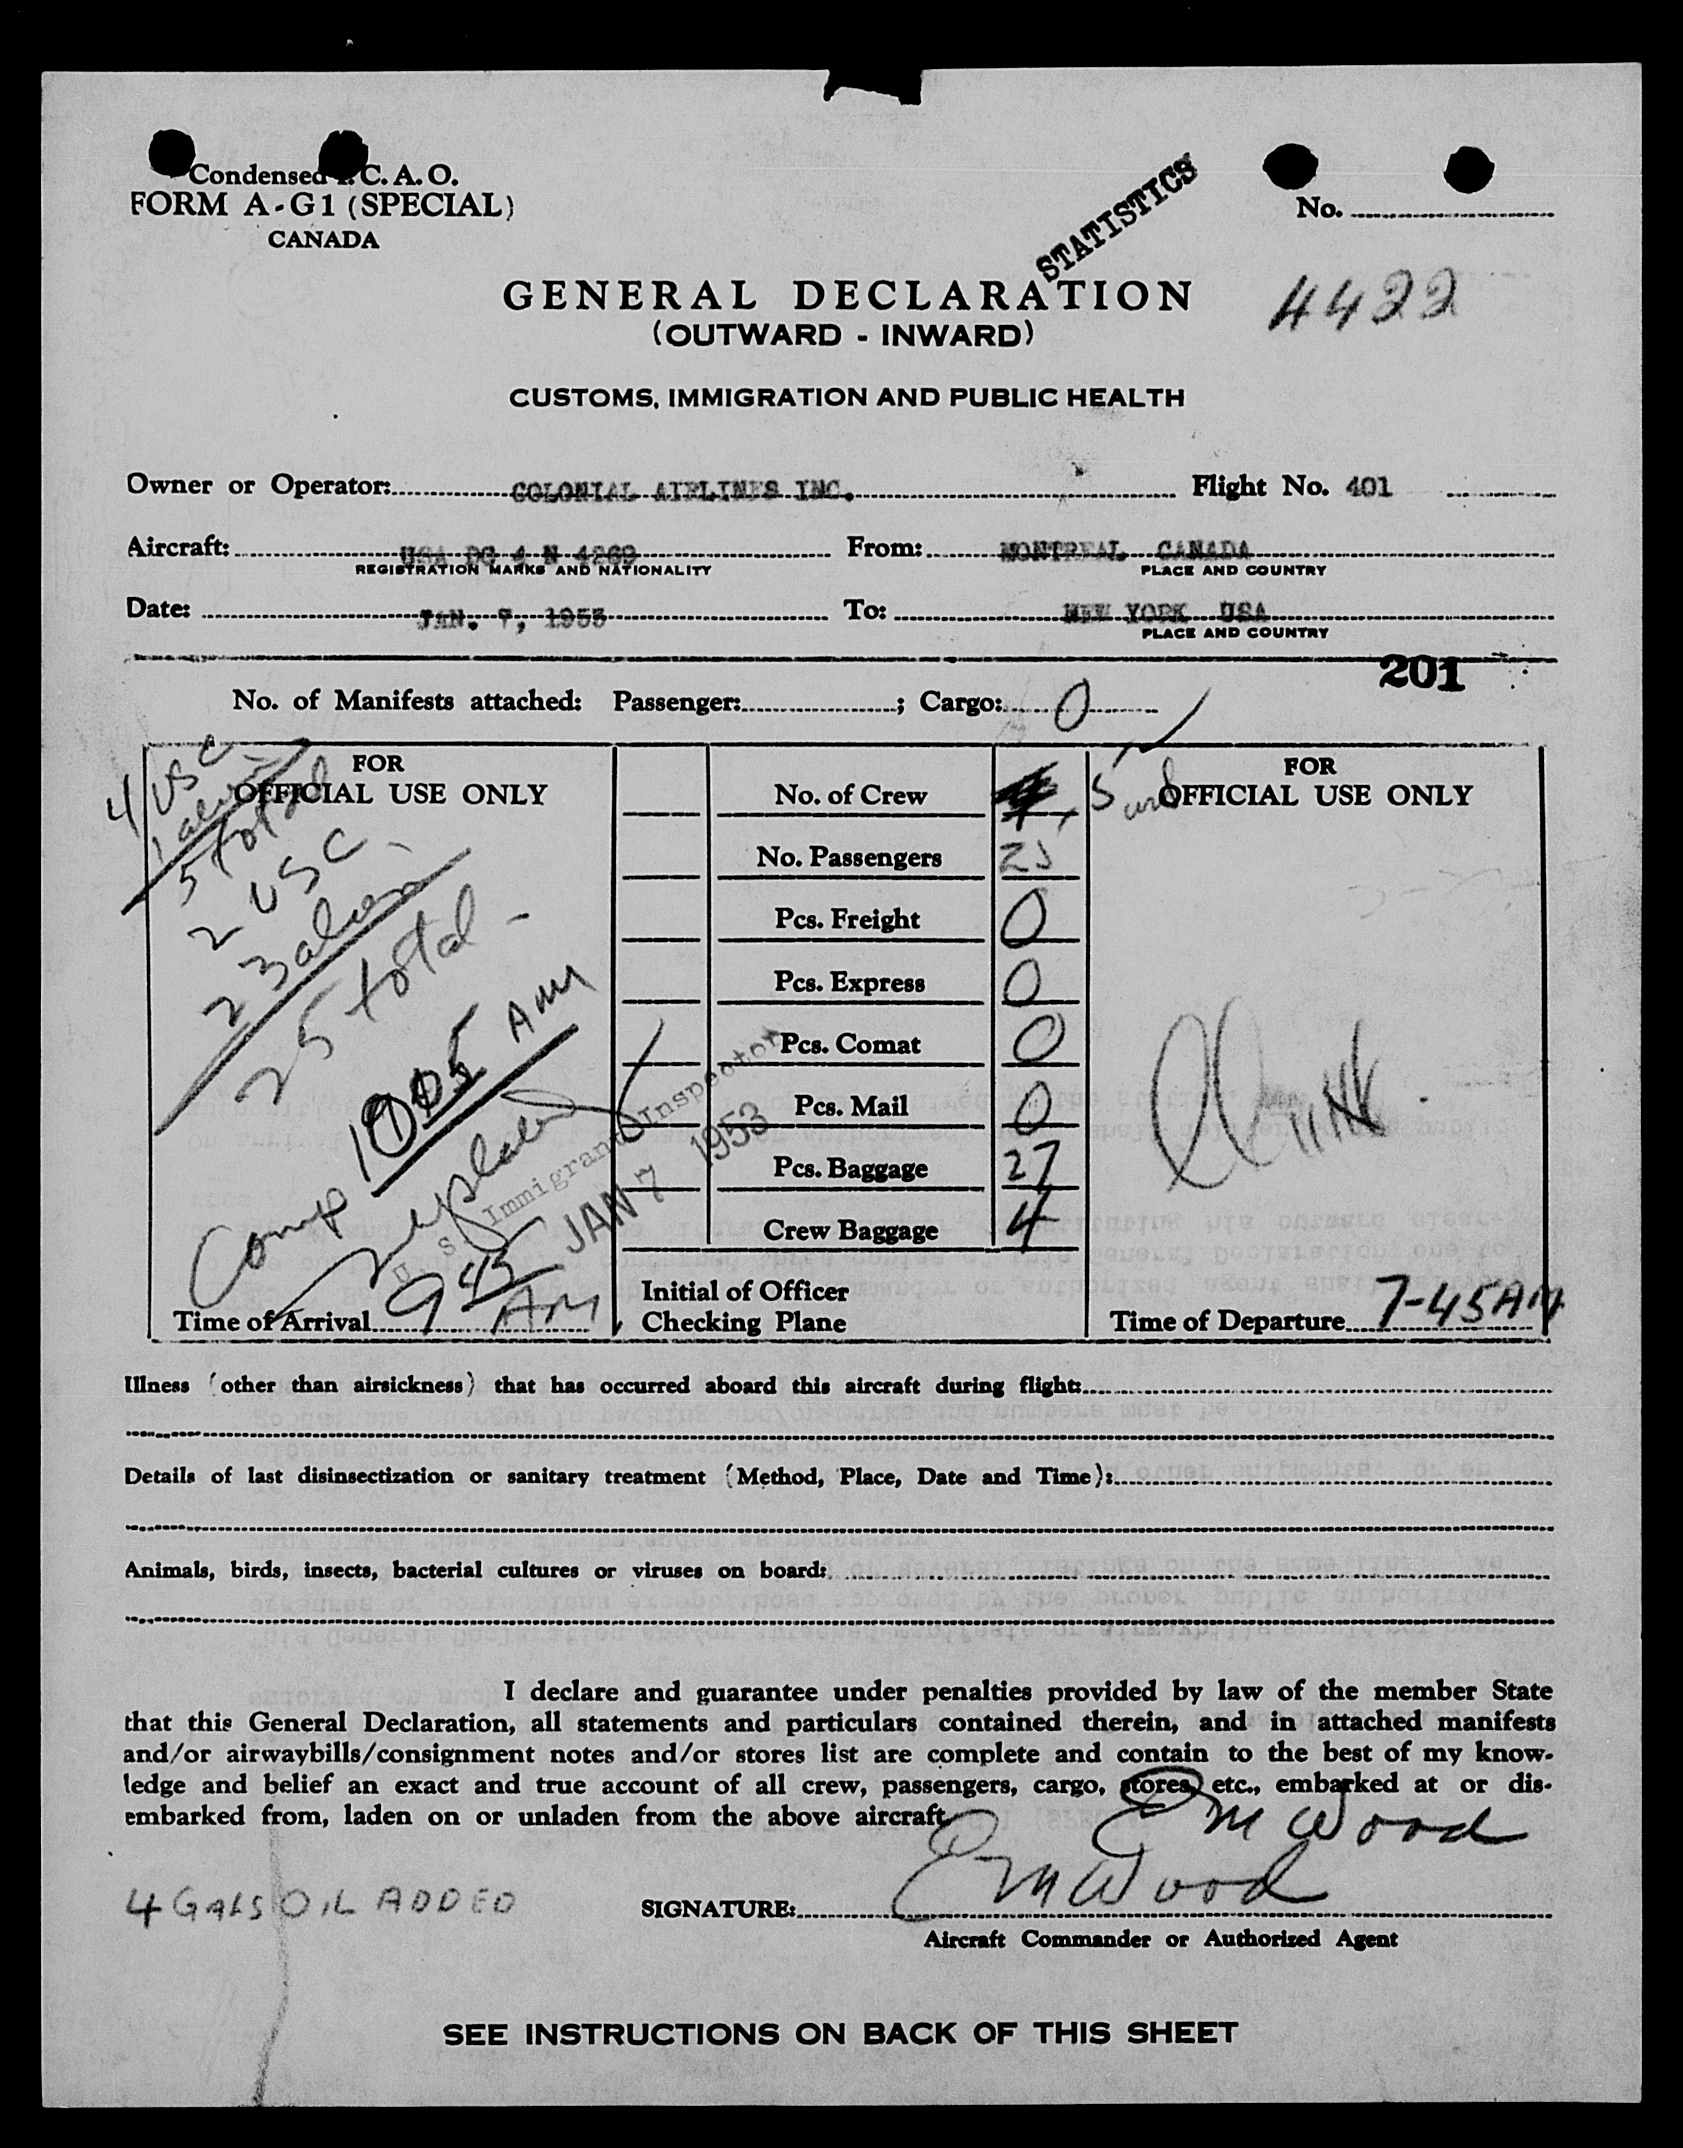 Condensed I. C. A. O.
FORM A-G1 (SPECIAL)
CANADA
STATISTICS
No.
4422
GENERAL DECLARATION
(OUTWARD - INWARD)
CUSTOMS, IMMIGRATION AND PUBLIC HEALTH
Owner or Operator: COLONIAL AIRLINES INC. Flight No. 401
Aircraft: USA DC 4 N 4269 From: MONTREAL CANADA
REGISTRATION MARKS AND NATIONALITY PLACE AND COUNTRY
Date: JAN. 7, 1953 To: NEW YORK USA
PLACE AND COUNTRY
201
No. of Manifests attached: Passenger: ; Cargo: 0
FOR
OFFICIAL USE ONLY
4 USC
1 alien
5 total
2 USC
23 alien
25 total
Comp 1005 AM
U. S. Immigrant Inspector
JAN 7 1953
Time of Arrival 945 AM
No. of Crew 5
No. Passengers 25
Pcs. Freight 0
Pcs. Express 0
Pcs. Comat 0
Pcs. Mail 0
Pcs. Baggage 27
Crew Baggage 4
Initial of Officer
Checking Plane
FOR
OFFICIAL USE ONLY
Time of Departure 7-45 AM
Illness (other than airsickness) that has occurred aboard this aircraft during flight:
Details of last disinsectization or sanitary treatment (Method, Place, Date and Time):
Animals, birds, insects, bacterial cultures or viruses on board:
I declare and guarantee under penalties provided by law of the member State
that this General Declaration, all statements and particulars contained therein, and in attached manifests
and/or airwaybills/consignment notes and/or stores list are complete and contain to the best of my know-
ledge and belief an exact and true account of all crew, passengers, cargo, stores, etc., embarked at or dis-
embarked from, laden on or unladen from the above aircraft.
EM Wood
4 GALS OIL ADDED
SIGNATURE: EM Wood
Aircraft Commander or Authorized Agent
SEE INSTRUCTIONS ON BACK OF THIS SHEET